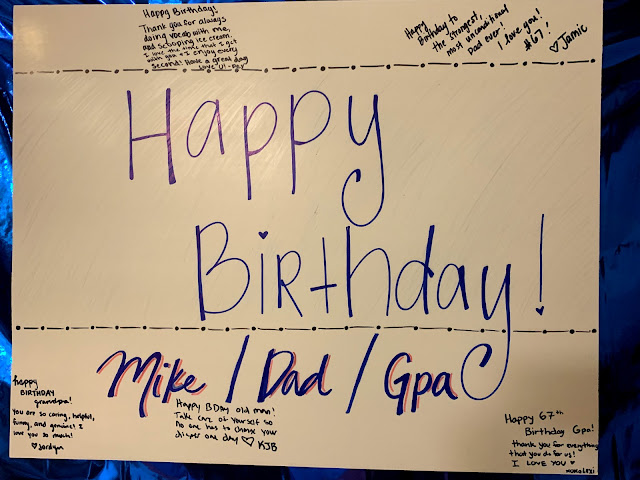 Happy Birthday!
Thank you for always
doing vocab with me,
and scooping ice cream.
I love the time that I get
with you + I enjoy every
second! Have a great day
Love U!
Happy
Birthday to
the strongest,
most unconditional
Dad ever!
I love you!
#67!
♡Jamie
Happy
Birthday!
Mike / Dad / Gpa
happy
BIRTHDAY
grandpa!
You are so caring, helpful,
funny, and genuine! I
love you so much!
♡Jordyn
Happy BDay old man!
Take care of yourself so
No one has to change your
diaper one day ♡ KJB
Happy 67th
Birthday Gpa!
thank you for everything
that you do for us!
I LOVE YOU ♥
XOXO Lexi